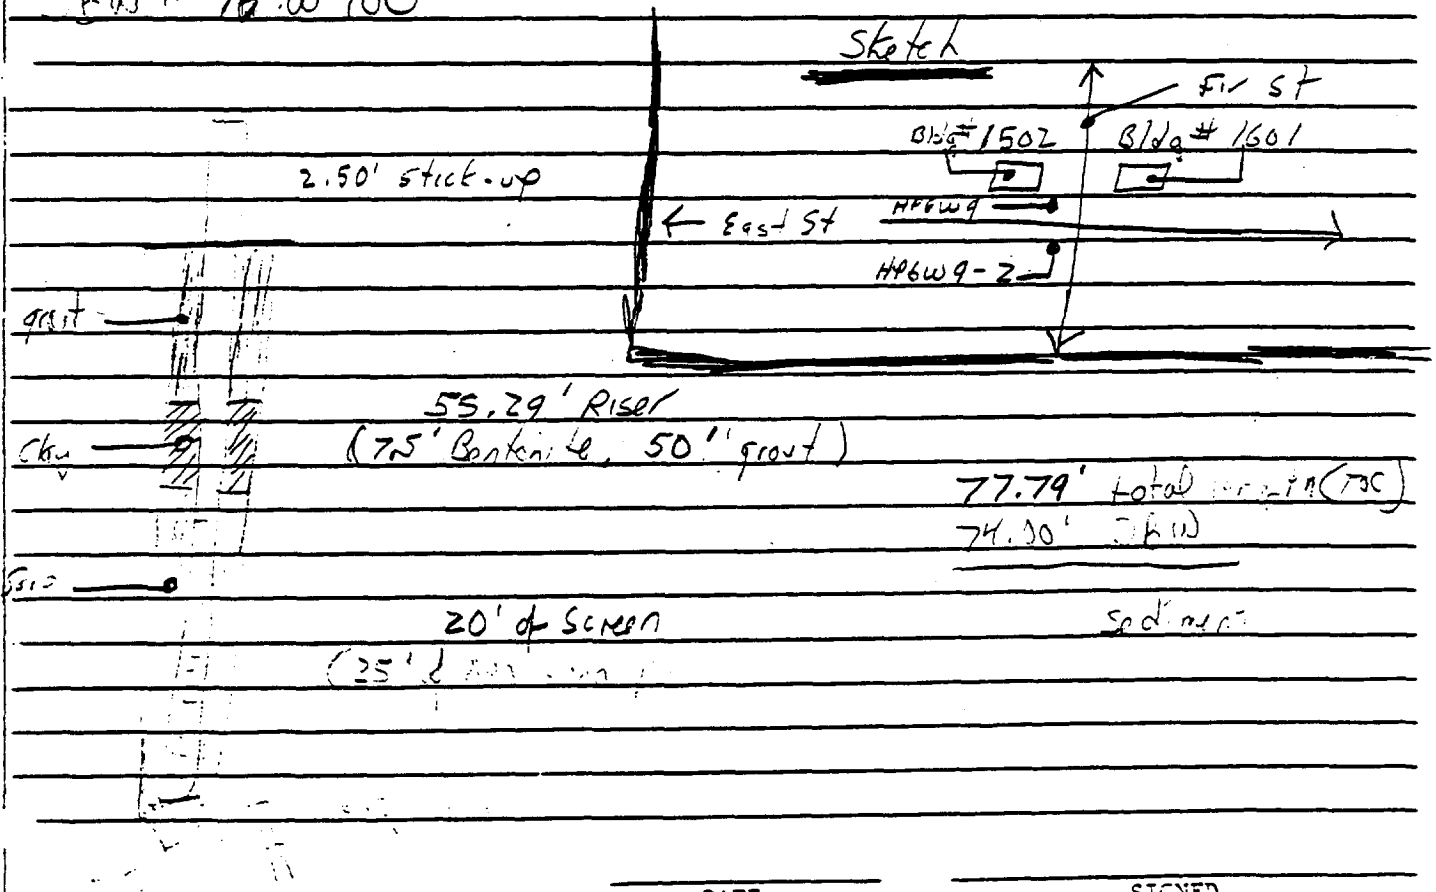 Sketch
Fir St
Bldg# 1502
Bldg # 1601
2.50' stick-up
HPGW9
← East St
HPGW9-2
grout
55.29' Riser
clay
(7.5' Bentonite, 50' grout)
77.79' total (TOC)
20' of Screen
sediment
(25'
DATE
SIGNED